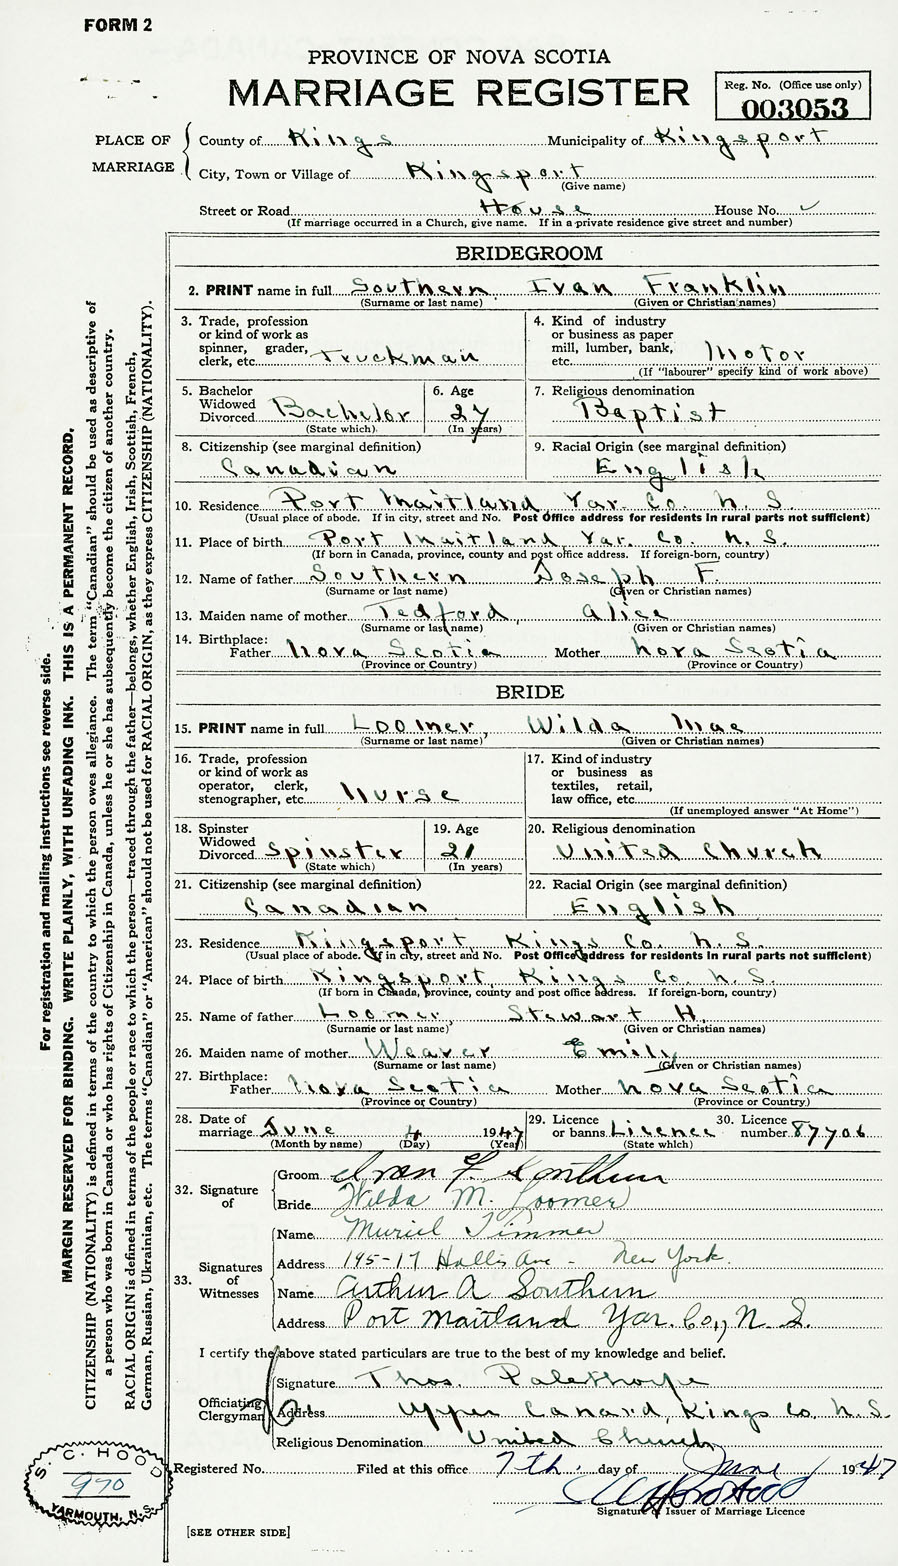 FORM 2
PROVINCE OF NOVA SCOTIA
MARRIAGE REGISTER
Reg. No. (Office use only)
003053
PLACE OF MARRIAGE
County of Kings Municipality of Kingsport
City, Town or Village of Kingsport
(Give name)
Street or Road House House No.
(If marriage occurred in a Church, give name. If in a private residence give street and number)
BRIDEGROOM
2. PRINT name in full Southern Ivan Franklin
(Surname or last name) (Given or Christian names)
3. Trade, profession
or kind of work as
spinner, grader,
clerk, etc. Truckman
4. Kind of industry
or business as paper
mill, lumber, bank,
etc. Motor
(If "labourer" specify kind of work above)
5. Bachelor
Widowed
Divorced Bachelor
(State which)
6. Age
27
(In years)
7. Religious denomination
Baptist
8. Citizenship (see marginal definition)
Canadian
9. Racial Origin (see marginal definition)
English
10. Residence Port Maitland Yar. Co. N. S.
(Usual place of abode. If in city, street and No. Post Office address for residents in rural parts not sufficient)
11. Place of birth Port Maitland Yar. Co. N. S.
(If born in Canada, province, county and post office address. If foreign-born, country)
12. Name of father Southern Joseph F.
(Surname or last name) (Given or Christian names)
13. Maiden name of mother Tedford, Alice
(Surname or last name) (Given or Christian names)
14. Birthplace:
Father Nova Scotia Mother Nova Scotia
(Province or Country) (Province or Country)
BRIDE
15. PRINT name in full Loomer, Wilda Mae
(Surname or last name) (Given or Christian names)
16. Trade, profession
or kind of work as
operator, clerk,
stenographer, etc. Nurse
17. Kind of industry
or business as
textiles, retail,
law office, etc.
(If unemployed answer "At Home")
18. Spinster
Widowed
Divorced Spinster
(State which)
19. Age
21
(In years)
20. Religious denomination
United Church
21. Citizenship (see marginal definition)
Canadian
22. Racial Origin (see marginal definition)
English
23. Residence Kingsport, Kings Co. N. S.
(Usual place of abode. If in city, street and No. Post Office address for residents in rural parts not sufficient)
24. Place of birth Kingsport, Kings Co. N. S.
(If born in Canada, province, county and post office address. If foreign-born, country)
25. Name of father Loomer, Stewart H.
(Surname or last name) (Given or Christian names)
26. Maiden name of mother Weaver Emily
(Surname or last name) (Given or Christian names)
27. Birthplace:
Father Nova Scotia Mother Nova Scotia
(Province or Country) (Province or Country)
28. Date of
marriage June 4 1947
(Month by name) (Day) (Year)
29. Licence
or banns Licence
(State which)
30. Licence
number 87706
32. Signature of
Groom Ivan F. Southern
Bride Wilda M. Loomer
33. Signatures of Witnesses
Name Muriel Timmer
Address 195-17 Hollis Ave - New York.
Name Arthur A Southern
Address Port Maitland Yar. Co., N. S.
I certify the above stated particulars are true to the best of my knowledge and belief.
Officiating Clergyman
Signature Thos. Palethorpe
Address Upper Canard, Kings Co. N. S.
Religious Denomination United Church
Registered No. Filed at this office 7th. day of June 1947
Signature of Issuer of Marriage Licence
[SEE OTHER SIDE]
S. C. HOOD
970
YARMOUTH, N. S.
For registration and mailing instructions see reverse side.
MARGIN RESERVED FOR BINDING. WRITE PLAINLY, WITH UNFADING INK. THIS IS A PERMANENT RECORD.
CITIZENSHIP (NATIONALITY) is defined in terms of the country to which the person owes allegiance. The term "Canadian" should be used as descriptive of
a person who was born in Canada or who has rights of Citizenship in Canada, unless he or she has subsequently become the citizen of another country.
RACIAL ORIGIN is defined in terms of the people or race to which the person—traced through the father—belongs, whether English, Irish, Scottish, French,
German, Russian, Ukrainian, etc. The terms "Canadian" or "American" should not be used for RACIAL ORIGIN, as they express CITIZENSHIP (NATIONALITY).